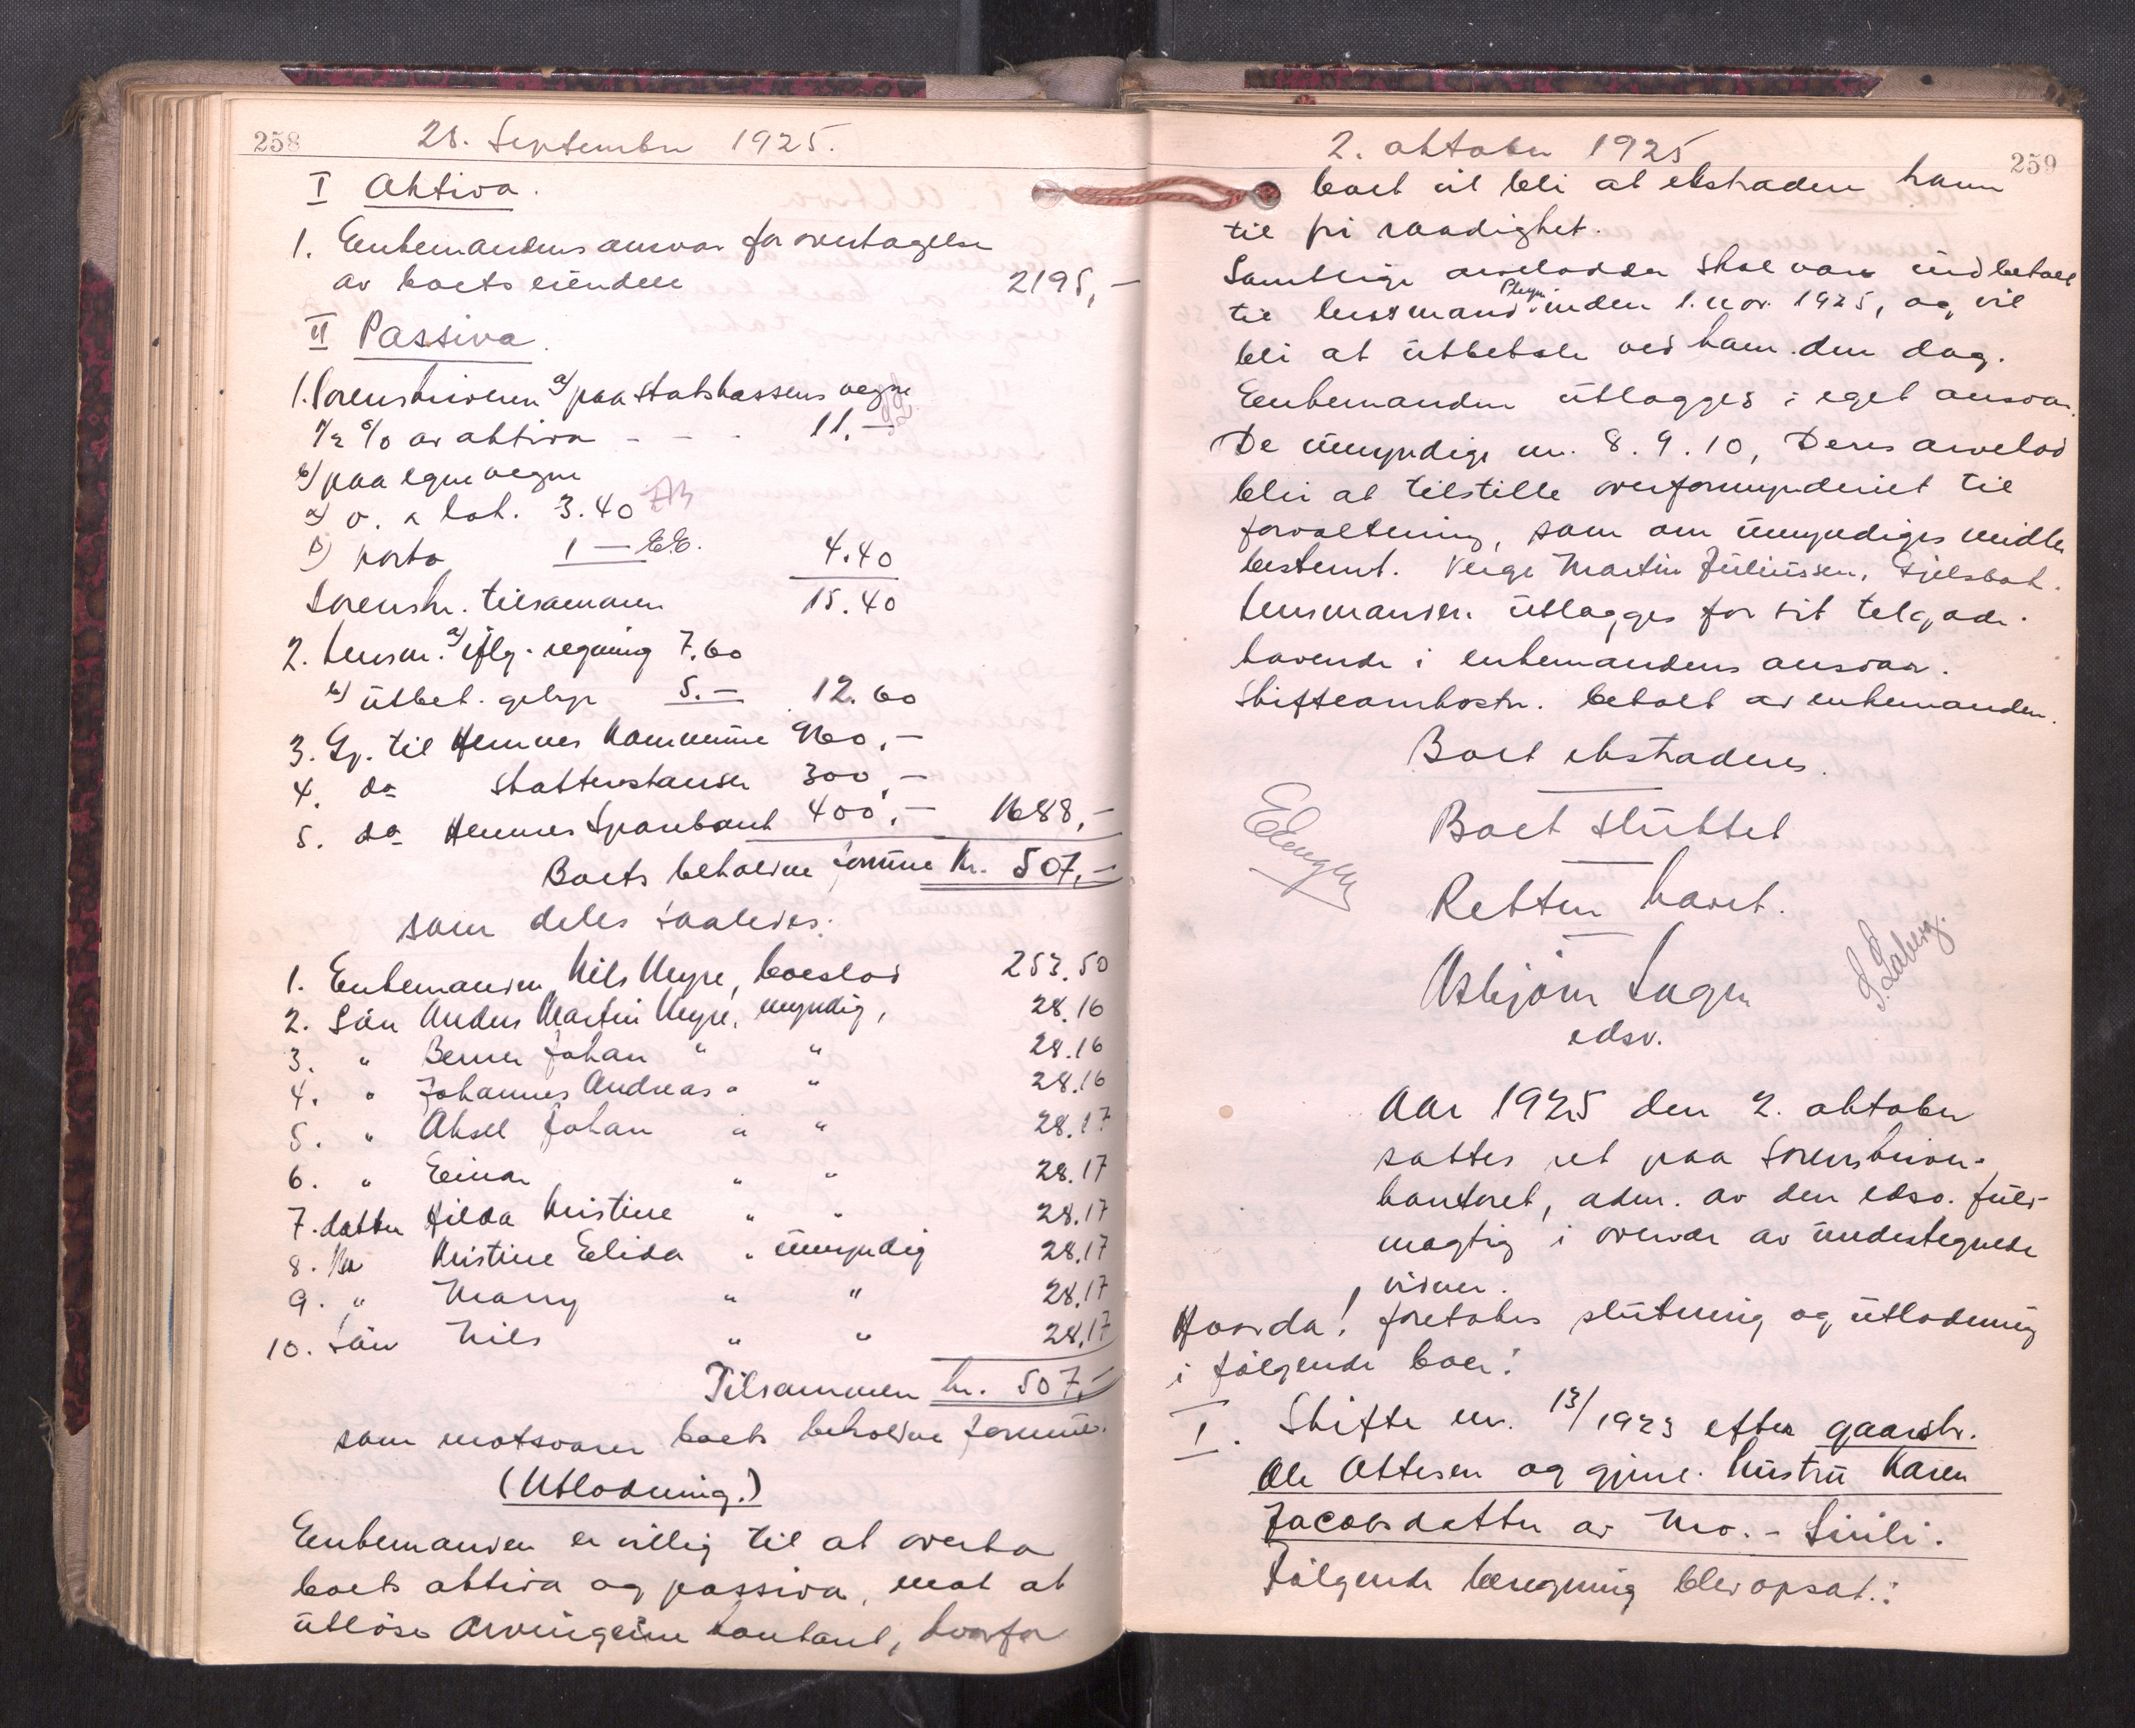 258
28. September 1925.
I Aktiva.
1. Enkemandens ansvar for overtagelse
av boets eiendele 2195,-
II Passiva.
1. Sorenskriveren a) paa statskassens vegne
1/2 % av aktiva - - - 11.-
b) paa egne vegne
a) o. 3.40
b) porto 1 —
4.40
Sorenskr. tilsammen 15.40
2. Lensm. a) iflg. regning 7.60
b) utbet. gebyr 5.- 12.60
3. Gj. til Hemnes kommune 960,-
4. do Skatterestanser 300,-
5. do Hemnes Sparebank 400,- 1688,-
Boets beholdne formue kr. 507,-
som deles saaledes:
1. Enkemanden Nils Meyre, boeslod 253.50
2. Sön Anders Martin Meyre, myndig, 28.16
3. " Berner Johan " " 28.16
4. " Johannes Andreas " " 28.16
5. " Aksel Johan " " 28.17
6. " Einar " " 28.17
7. datter Hilda Kristine " " 28.17
8. do Kristine Elida " umyndig 28.17
9. " Marry " " 28.17
10. Sön Nils " " 28.17
Tilsammen kr. 507,-
som motsvarer boets beholdne formue.
(Utlodning.)
Enkemanden er villig til at overta
boets aktiva og passiva, mot at
utlöse arvingerne kontant, hvorfor
2. oktober 1925
259
boet vil bli at ekstradere ham
til fri raadighet.
Samtlige arvelodder skal være indbetalt
til lensmand inden 1. nov. 1925, og vil
bli at utbetale ved ham den dag.
Enkemanden utlægges i eget ansvar.
De umyndige nr. 8. 9. 10, Deres arvelod
blir at tilstille overformynderiet til
forvaltning, som om umyndiges midler
bestemt. Verge Martin Juliussen, Fjelsbak.
Lensmanden utlægges for sit tilgode-
havende i enkemandens ansvar.
Skifteomkostn. betalt av enkemanden.
Boet ekstraderes.
Boet sluttet
Retten hævet.
Asbjörn Lagen
edsv.
Aar 1925 den 2. oktober
sattes ret paa Sorenskriver-
kontoret, adm. av den edsv. fuld-
mægtig i overvær av undertegnede
vidner.
Hvorda! foretokes slutning og utlodning
i følgende boer:
I. Skifte nr. 13/1923 efter gaardbr.
Ole Ottesen og gjenl. Hustru Karen
Jacobsdatter av Mo. -
Følgende beregning blev opsat: